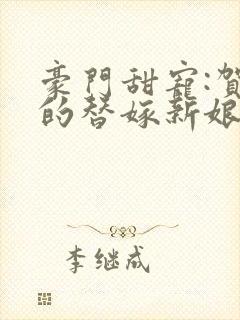 豪門甜寵:賀
的替嫁新娘
李继成